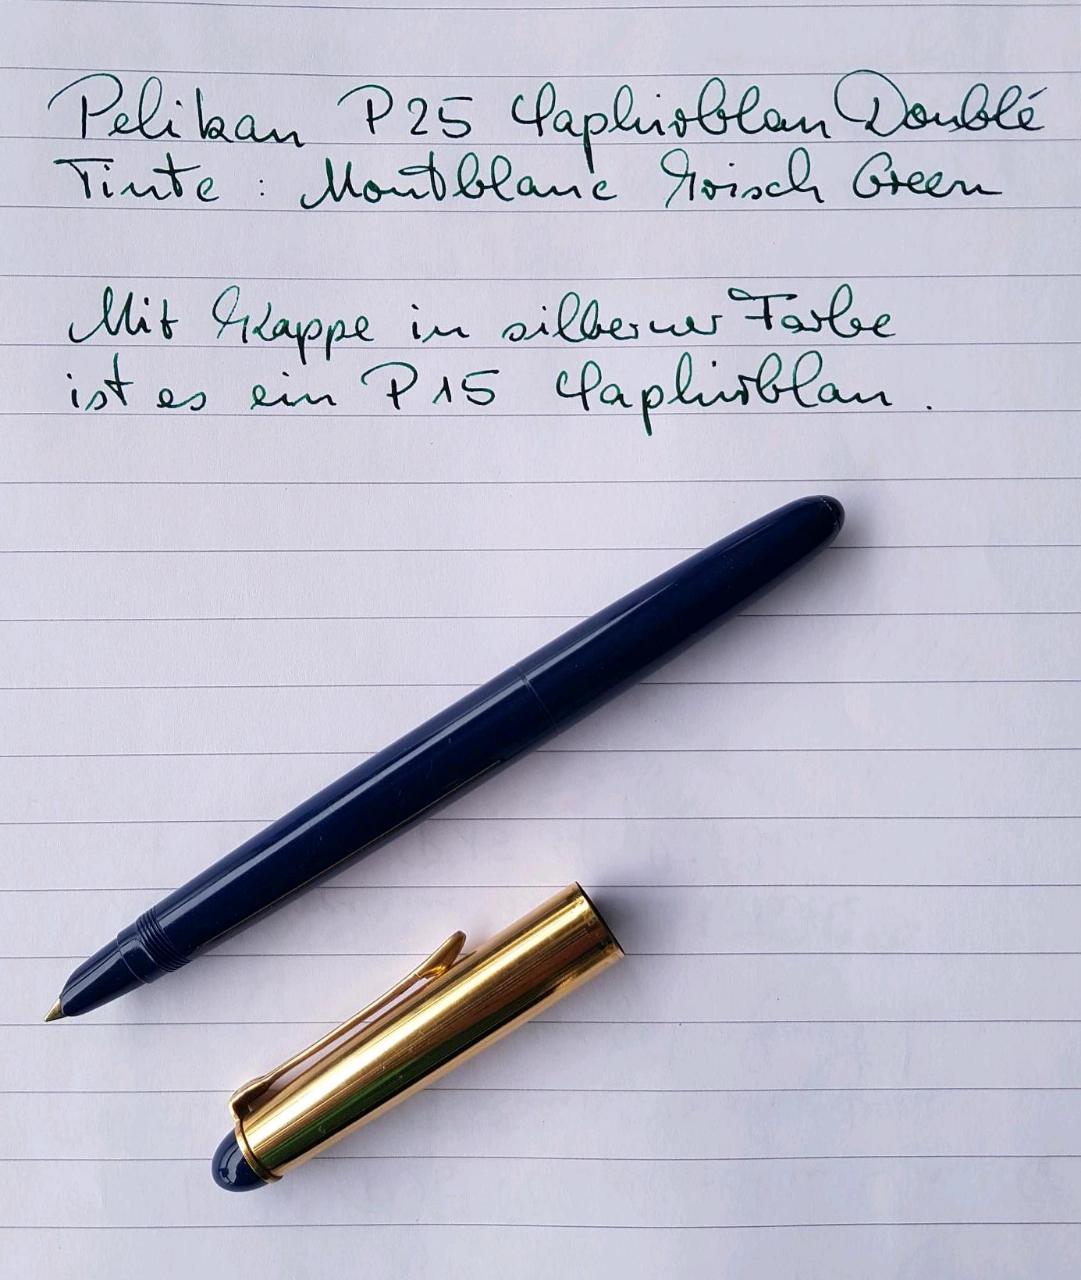 Pelikan P25 Saphirblau Doublé
Tinte : Montblanc Irish Green
Mit Kappe in silberner Farbe
ist es ein P15 Saphirblau.